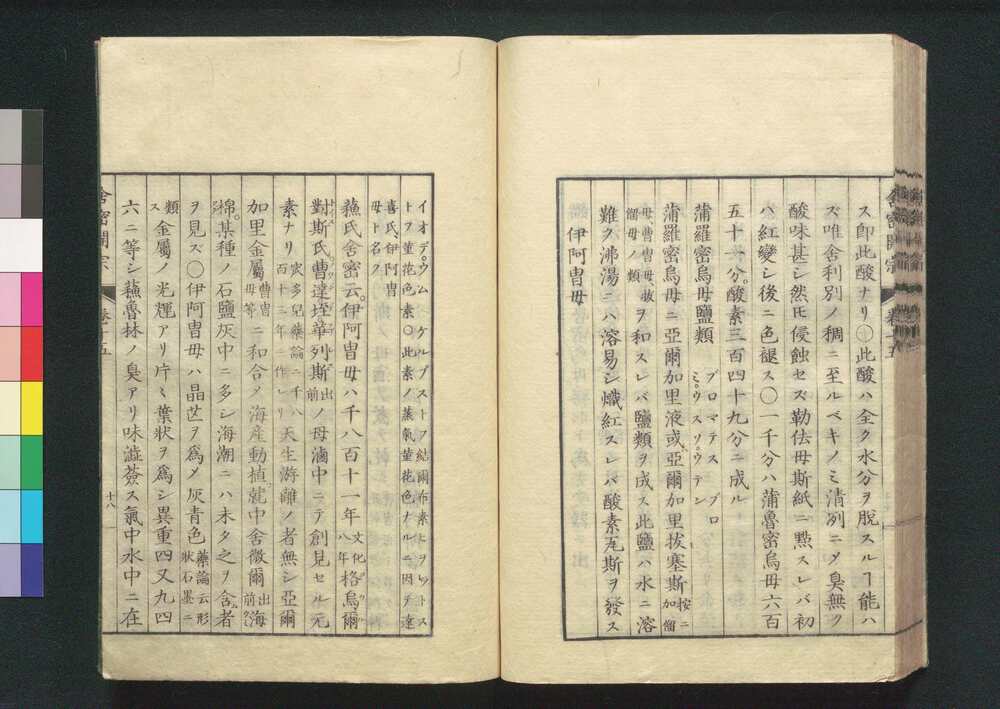 ス即此酸ナリ〇此酸ハ全ク水分ヲ脱スルヿ能ハ
ズ唯舎利別ノ稠ニ至ルベキノミ清冽ニメ臭無ク
酸味甚シ然氏侵蝕セズ勒佉母斯紙ニ點スレバ初
ハ紅變シ後ニ色褪ス〇一千分ハ蒲魯密烏母六百
五十一分酸素三百四十九分ニ成ル
蒲羅密烏母鹽類 ブロマテス ブロミウスソウテン
蒲羅密烏母ニ亞爾加里液或亞爾加里拔塞斯 按ニ加㽞
母、曹母、故㽞母ノ類 ヲ和スレバ鹽類ヲ成ス此鹽ハ水ニ溶
難ク沸湯ニハ溶易シ熾紅スレバ酸素瓦斯ヲ發ス
伊阿冑母
イオデウム ケルプストフ 結爾布素
トフ 菫花色素〇此素ノ蒸氣菫花色ナルニ因テ達
喜氏、伊阿冑母ト名ク
蘓氏舎密云伊阿冑母ハ千八百十一年 文化八年 格烏爾
對斯氏曹達垤華列斯 出前 ノ母滷中ニテ創見セル元
素ナリ 衮多兒藥論ニ千八百十三年ニ作レリ 天生游離ノ者無シ亞爾
加里金属 曹冑母等 ニ和合メ海産動植就中舎微爾 出前 海
棉某種ノ石鹽灰中ニ多シ海潮ニハ未タ之ヲ含者
ヲ見ズ〇伊阿冑母ハ晶苉ヲ爲メ灰青色 藥論云形状石墨ニ
類ス 金屬ノ光輝アリ片々葉状ヲ爲シ異重四又九四
六ニ等シ蘓魯林ノ臭アリ味澁薟ス氣中水中ニ在
舎密開宗 巻十五
十八